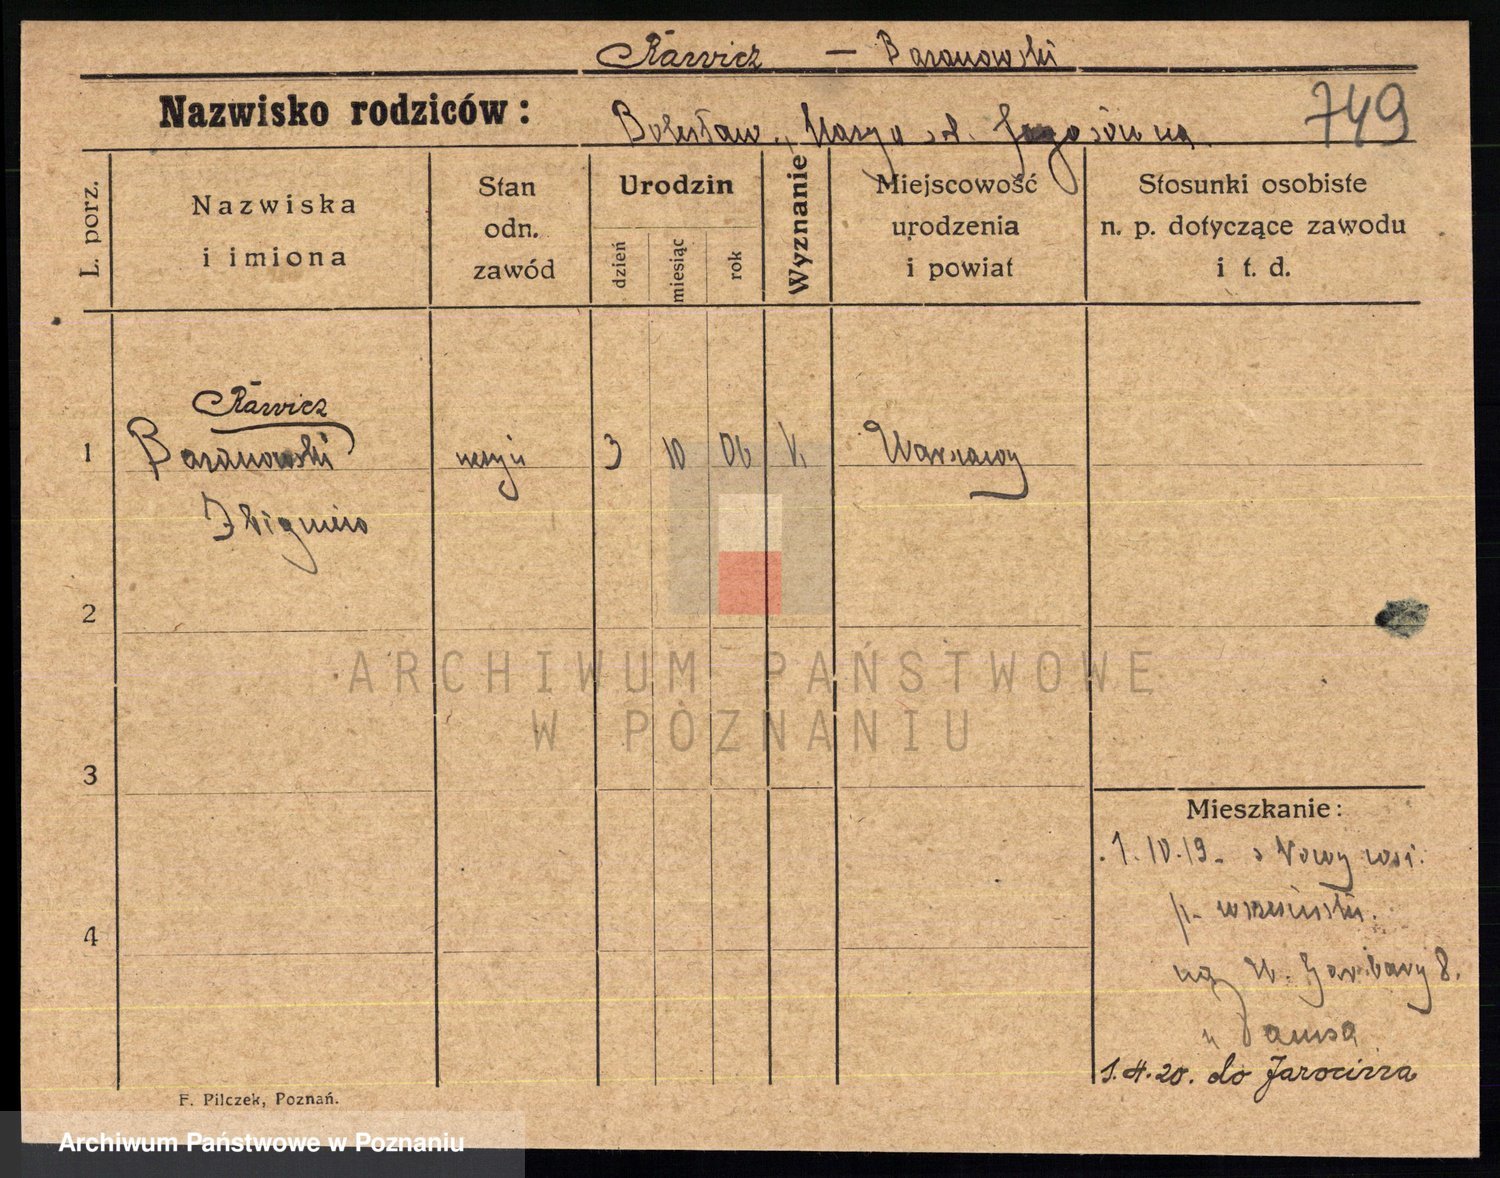 Rawicz — Baranowski
Nazwisko rodziców:
Bolesław, Marya
749
L. porz.
Nazwiska
i imiona
Stan
odn.
zawód
Urodzin
dzień
miesiąc
rok
Wyznanie
Miejscowość
urodzenia
i powiat
Stosunki osobiste
n. p. dotyczące zawodu
i t. d.
Rawicz
1 Baranowski 3 10 06 k. Warszawy
Zbigniew
2
ARCHIWUM PAŃSTWOWE
W POZNANIU
3
Mieszkanie:
1.10.19. z Nowy wsi.
p.
4
na W. Garbary 8.
1.4.20. do Jarocina
F. Pilczek, Poznań.
Archiwum Państwowe w Poznaniu